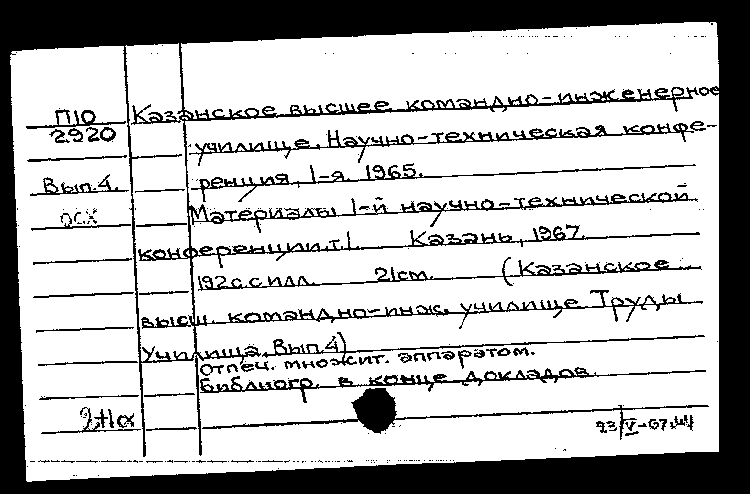 П10 Казанское высшее командно-инженерное
2920 училище. Научно-техническая конфе-
Вып.4. ренция, 1-я. 1965.
осх Материалы 1-й научно-технической
конференции.т.1. Казань, 1967.
192с.с илл. 21см. (Казанское
высш. командно-инж. училище Труды
Училища. Вып.4)
отпеч. множит. аппаратом.
Библиогр. в конце докладов.
23/V-67.